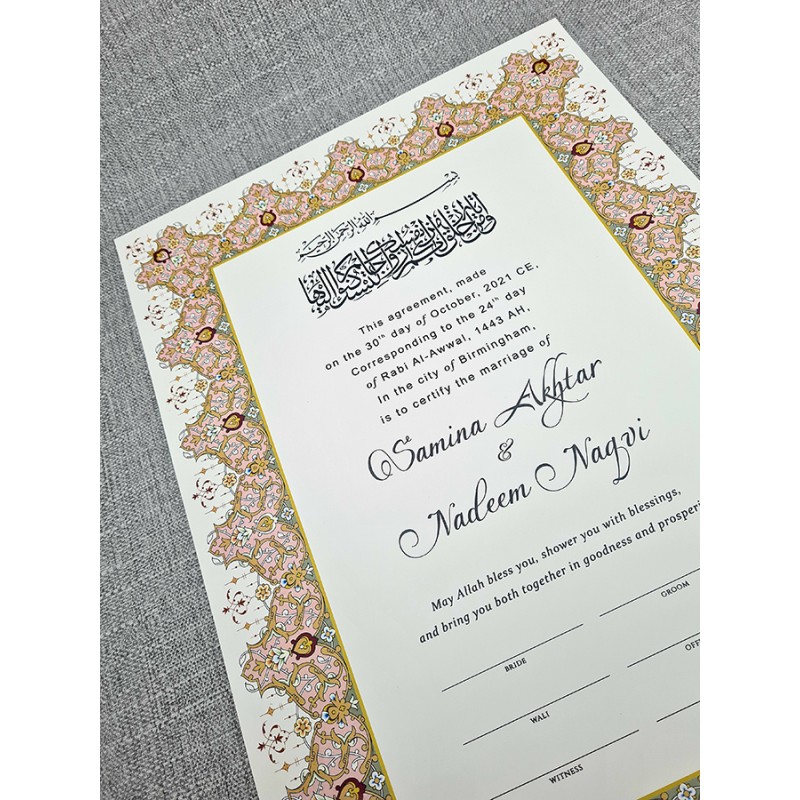 بسم الله الرحمن الرحيم
ومن آياته أن خلق لكم من أنفسكم أزواجا لتسكنوا إليها
This agreement, made
on the 30th day of October, 2021 CE,
Corresponding to the 24th day
of Rabi Al-Awwal, 1443 AH,
In the city of Birmingham,
is to certify the marriage of
Samina Akhtar
&
Nadeem Naqvi
May Allah bless you, shower you with blessings,
and bring you both together in goodness and prosperi
BRIDE GROOM
WALI OFF
WITNESS